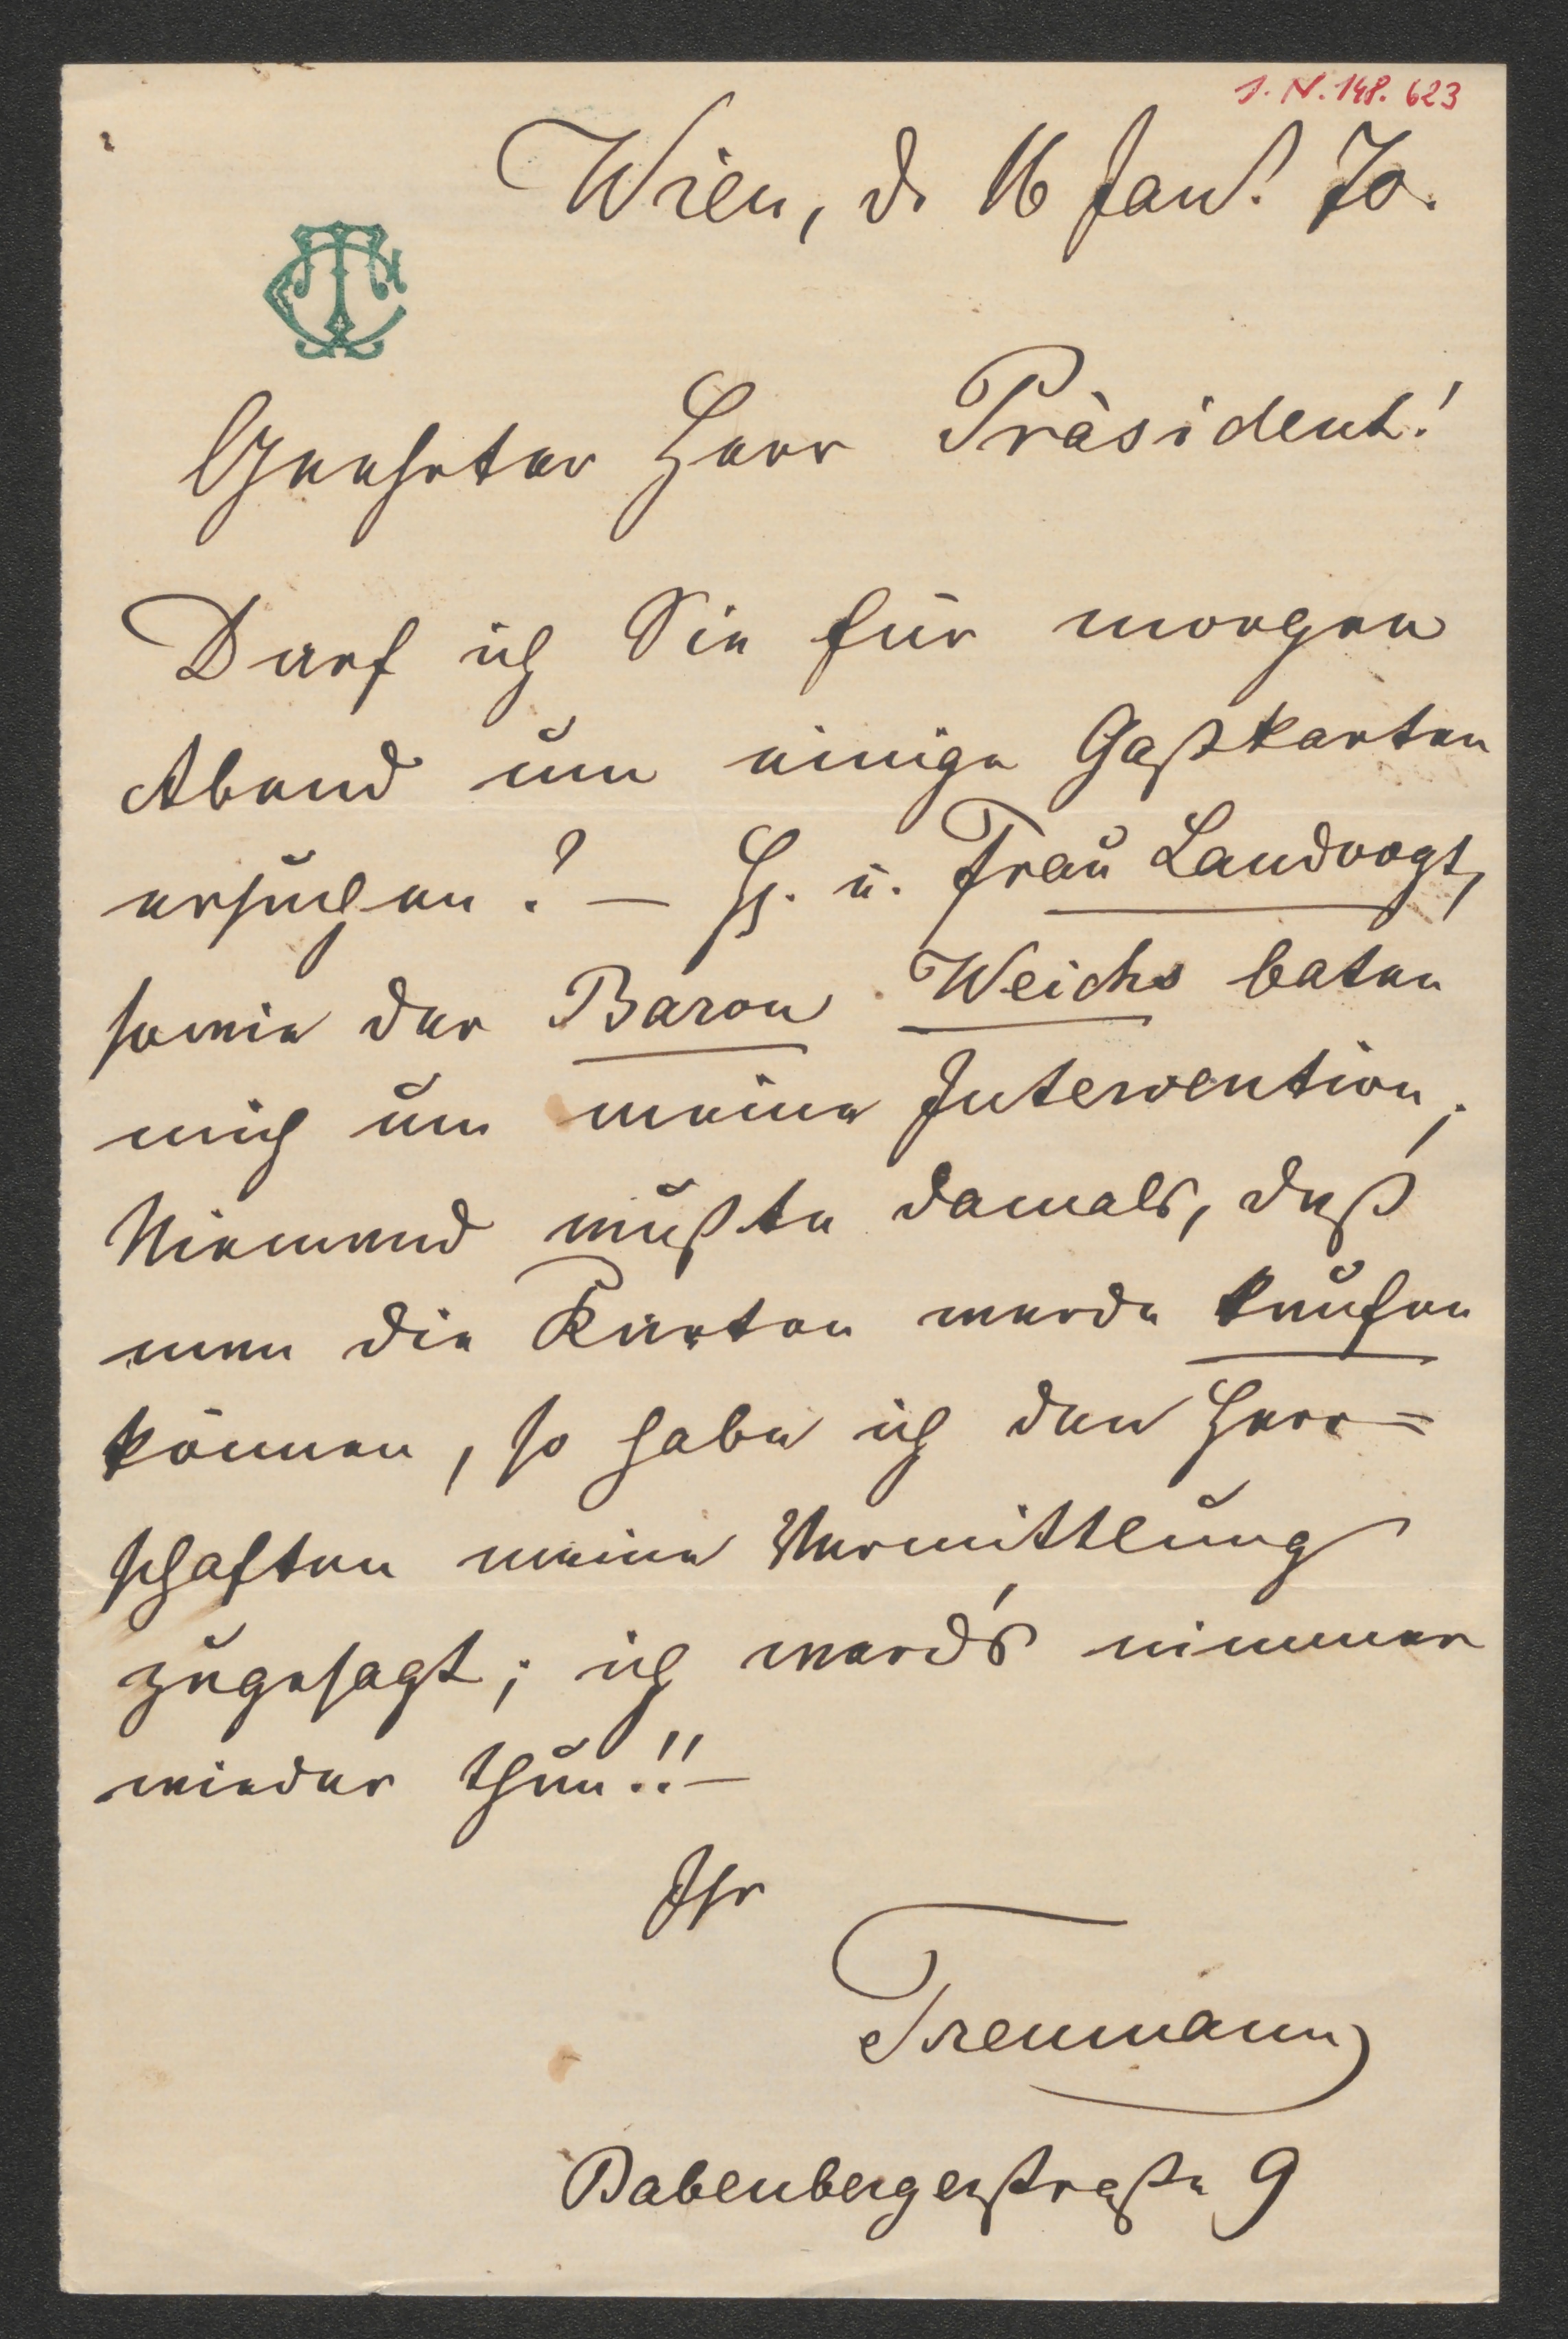 J. N. 148.623
Wien, d. 16 Jan! 70.
CT
Geehrter Herr Präsident!
Darf ich Sie für morgen
Abend um einige Gastkarten
ersuchen? — H. u. Frau Landvogt,
sowie der Baron Weichs baten
mich um meine Intervention;
Niemand wußte damals, daß
man die Karten werde kaufen
können, so habe ich den Herr=
schaften meine Vermittlung
zugesagt; ich werd's nimmer
wieder thun!! —
Ihr
Treumann
Babenbergerstraße 9